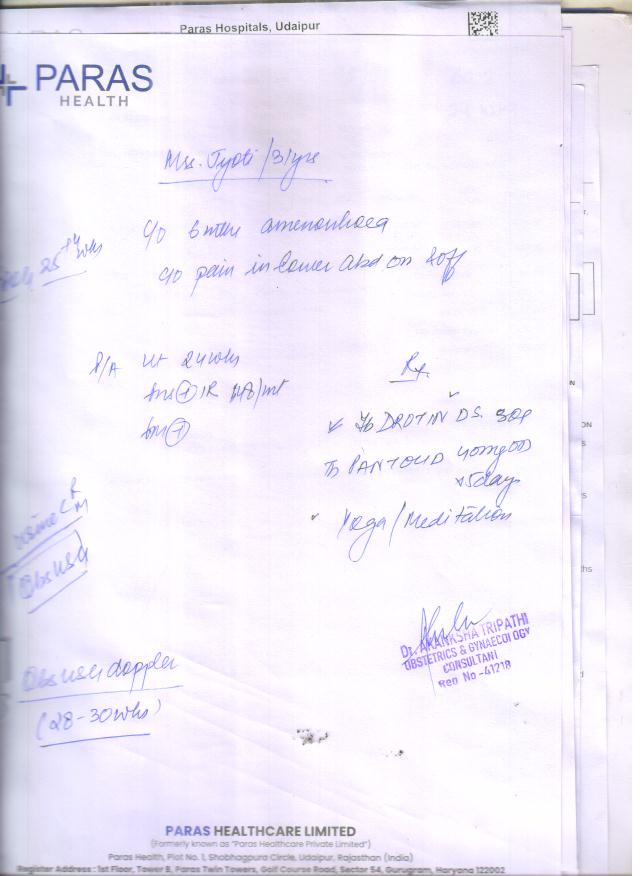 Paras Hospitals, Udaipur
PARAS
HEALTH
Mrs. Jyoti / 31yrs
C/O 6 mths amenorrhoea
C/O pain in lower Abd on & off
25 wks
P/A Ut 24 wks
FHS + R 148/mt
FM +
Rx
Tb DROTIN DS. SOS
Tb PANTOCID 40mg OD
x 5 days
Yoga / Meditation
Urine R M
C
Obs USG
Obs USG doppler
(28-30 wks)
Dr. AKANKSHA TRIPATHI
OBSTETRICS & GYNAECOLOGY
CONSULTANT
Reg No -41218
PARAS HEALTHCARE LIMITED
(Formerly known as "Paras Healthcare Private Limited")
Paras Health, Plot No. 1, Shobhagpura Circle, Udaipur, Rajasthan (India)
Register Address : 1st Floor, Tower B, Paras Twin Towers, Golf Course Road, Sector 54, Gurugram, Haryana 122002